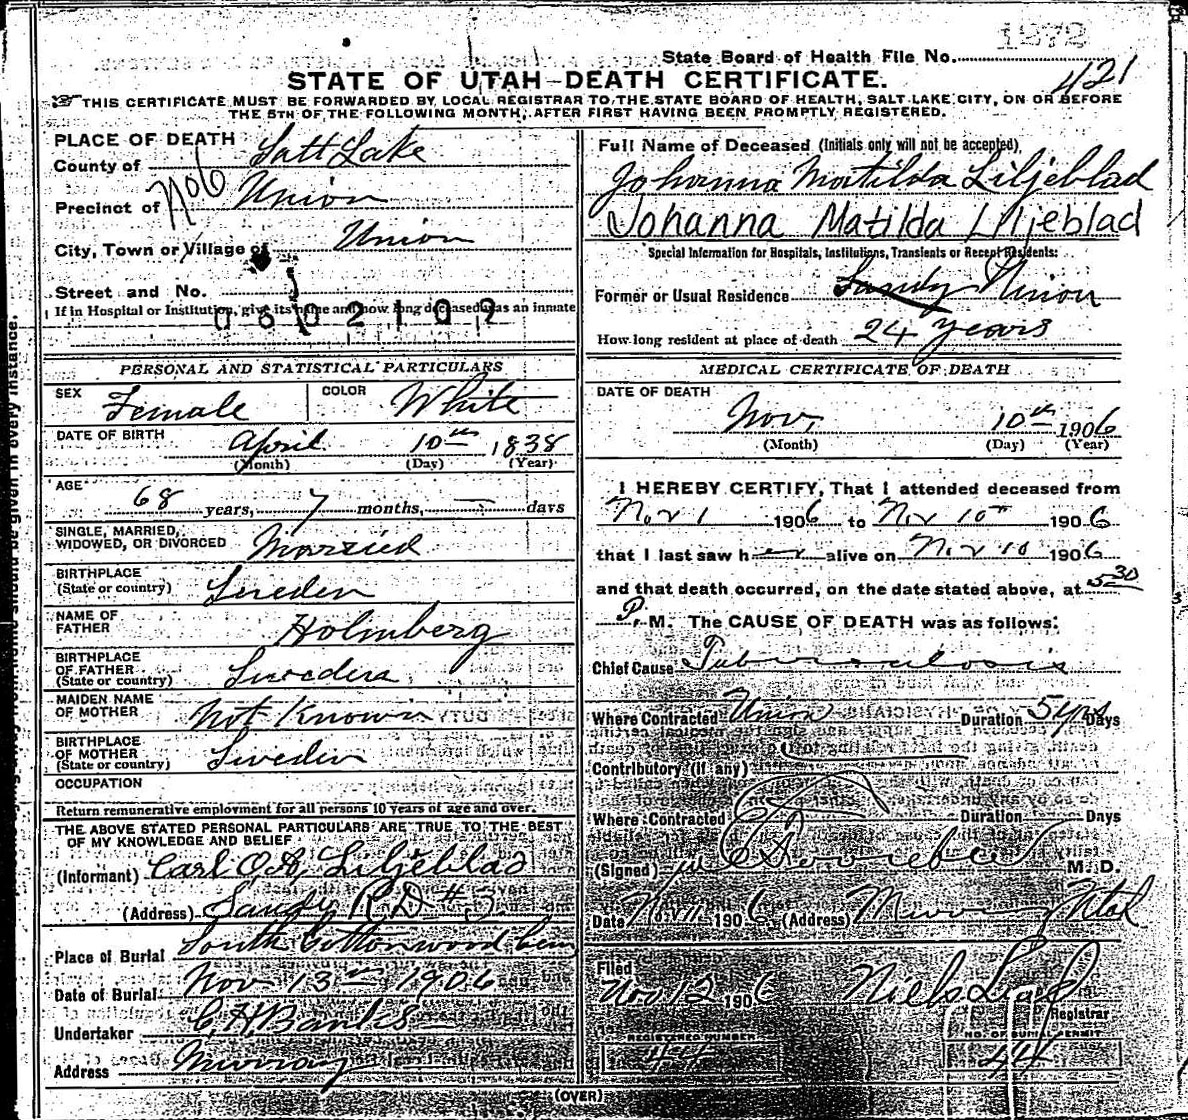 1272
State Board of Health File No.
421
STATE OF UTAH—DEATH CERTIFICATE.
THIS CERTIFICATE MUST BE FORWARDED BY LOCAL REGISTRAR TO THE STATE BOARD OF HEALTH, SALT LAKE CITY, ON OR BEFORE
THE 5TH OF THE FOLLOWING MONTH, AFTER FIRST HAVING BEEN PROMPTLY REGISTERED.
PLACE OF DEATH
County of Salt Lake
Precinct of No 6 Union
City, Town or Village of Union
Street and No.
If in Hospital or Institution, give its name and how long deceased was an inmate
PERSONAL AND STATISTICAL PARTICULARS
SEX Female COLOR White
DATE OF BIRTH April 10th 1838
(Month) (Day) (Year)
AGE 68 years, 7 months, — days
SINGLE, MARRIED, WIDOWED, OR DIVORCED Married
BIRTHPLACE (State or country) Sweden
NAME OF FATHER Holmberg
BIRTHPLACE OF FATHER (State or country) Sweden
MAIDEN NAME OF MOTHER Not Known
BIRTHPLACE OF MOTHER (State or country) Sweden
OCCUPATION
Return remunerative employment for all persons 10 years of age and over.
THE ABOVE STATED PERSONAL PARTICULARS ARE TRUE TO THE BEST
OF MY KNOWLEDGE AND BELIEF
(Informant) Carl O.A. Liljeblad
(Address) Sandy R D # 3
Place of Burial South Cottonwood Cem
Date of Burial Nov 13th 1906
Undertaker C. H Banks
Address Murray
Full Name of Deceased (Initials only will not be accepted),
Johanna Matilda Liljeblad
Johanna Matilda Liljeblad
Special Information for Hospitals, Institutions, Transients or Recent Residents:
Former or Usual Residence Sandy Union
How long resident at place of death 24 years
MEDICAL CERTIFICATE OF DEATH
DATE OF DEATH
Nov. 10th 1906
(Month) (Day) (Year)
I HEREBY CERTIFY, That I attended deceased from
Nov 1 1906 to Nov 10th 1906
that I last saw her alive on Nov 10 1906
and that death occurred, on the date stated above, at 5 30
P. M. The CAUSE OF DEATH was as follows:
Chief Cause Tuberculosis
Where Contracted Union Duration 5 yrs Days
Contributory (if any)
Where Contracted Duration Days
(Signed) M. D.
Date Nov 11 1906 (Address) Murray Utah
Filed
Nov 12 1906 Niels Lind
Registrar
REGISTERED NUMBER NO. OF BURIAL PERMIT
44 44
(OVER)